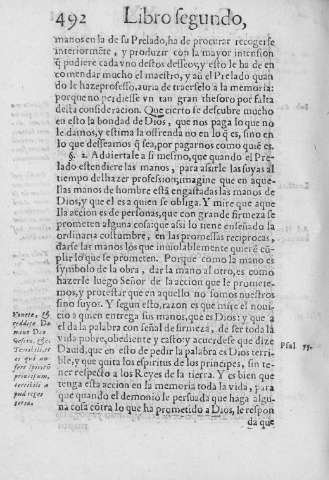 492 Libro segundo,
manos en la de su Prelado, ha de procurar recogerse
interiormẽte, y produzir con la mayor intension
q̃ pudiere cada vno destos desseos, y esto le ha de en
comendar mucho el maestro, y aũ el Prelado quan
do le haze professo, aura de traerselo a la memoria:
porque no perdiesse vn tan gran thesoro por falta
desta consideracion. Que cierto se descubre mucho
en esto la bondad de Dios, que nos paga lo que no
le damos, y estima la ofrenda no en lo q̃ es, sino en
lo que desseamos q̃ sea, por pagarnos como quiẽ es.
§. 2. Aduiertale a si mesmo, que quando el Pre-
lado estendiere las manos, para asirle las suyas al
tiempo del hazer profession, imagine que en aque-
llas manos de hombre està engastadas las manos de
Dios, y que el es a quien se obliga. Y mire que aque
lla accion es de personas, que con grande firmeza se
prometen alguna cosa: que assi lo tiene enseñado la
ordinaria costumbre, en las promessas reciprocas,
darse las manos los que inuiolablemente quierẽ cũ-
plir lo que se prometen. Porque como la mano es
symbolo de la obra, dar la mano al otro, es como
hazerle luego Señor de la accion que le promete-
mos, y protestar que en aquello no somos nuestros
sino suyos. Y segun esto, razon es que mire el noui-
cio a quien entrega sus manos, que es Dios: y que a
el da la palabra con señal de firmeza, de ser toda la
vida pobre, obediente y casto: y acuerdese que dize
Dauid, que en esto de pedir la palabra es Dios terri-
ble, y que quita los espiritus de los principes, sin te-
ner respecto a los Reyes de la tierra. Y es bien que
tenga esta accion en la memoria toda la vida, para
que quando el demonio le persuada que haga algu-
na cosa cõtra lo que ha prometido a Dios, le respon
da que
Vouete, &
reddite Do
mino Deo
vestro, &c.
Terribili, et
ei qui au-
fert spiritũ
principum,
terribili a
pud reges
terræ.
Psal. 75.